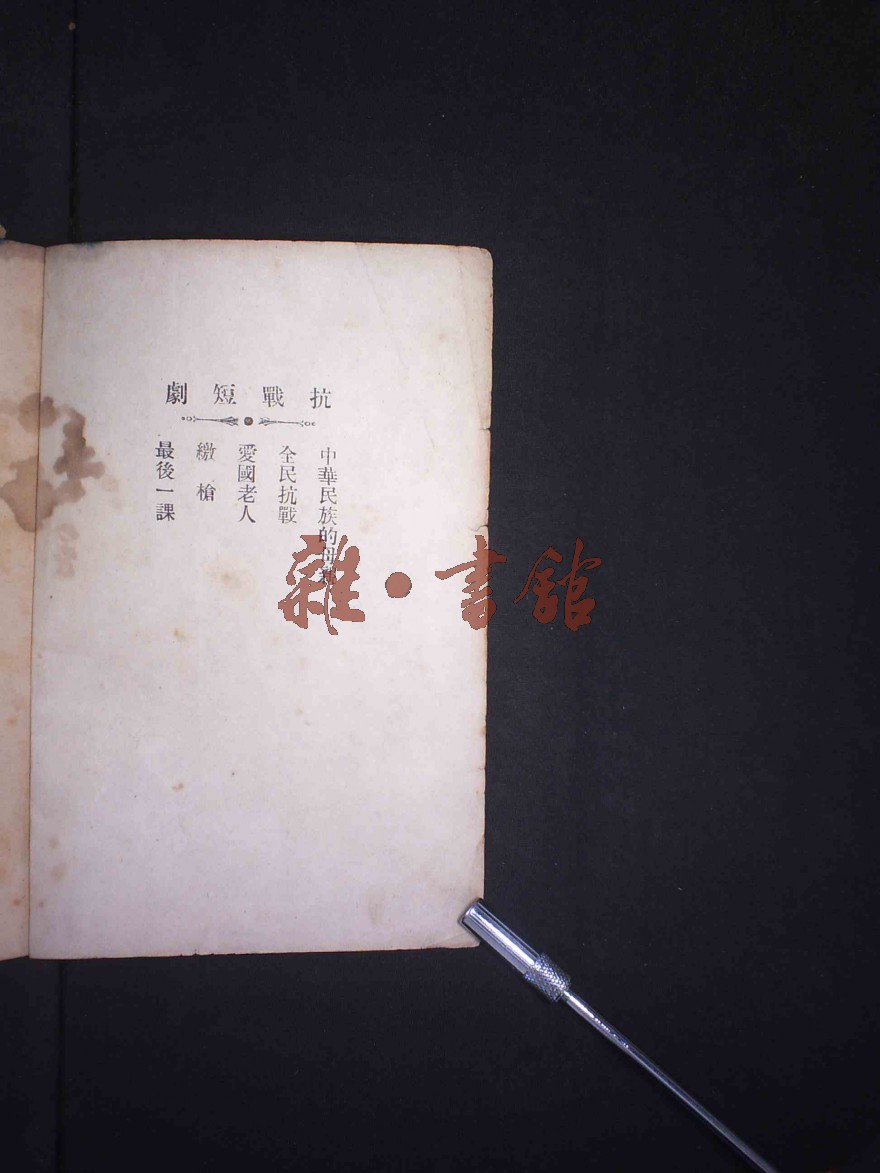 抗戰短劇
中華民族的母親
全民抗戰
愛國老人
繳槍
最後一課
雜·書舘